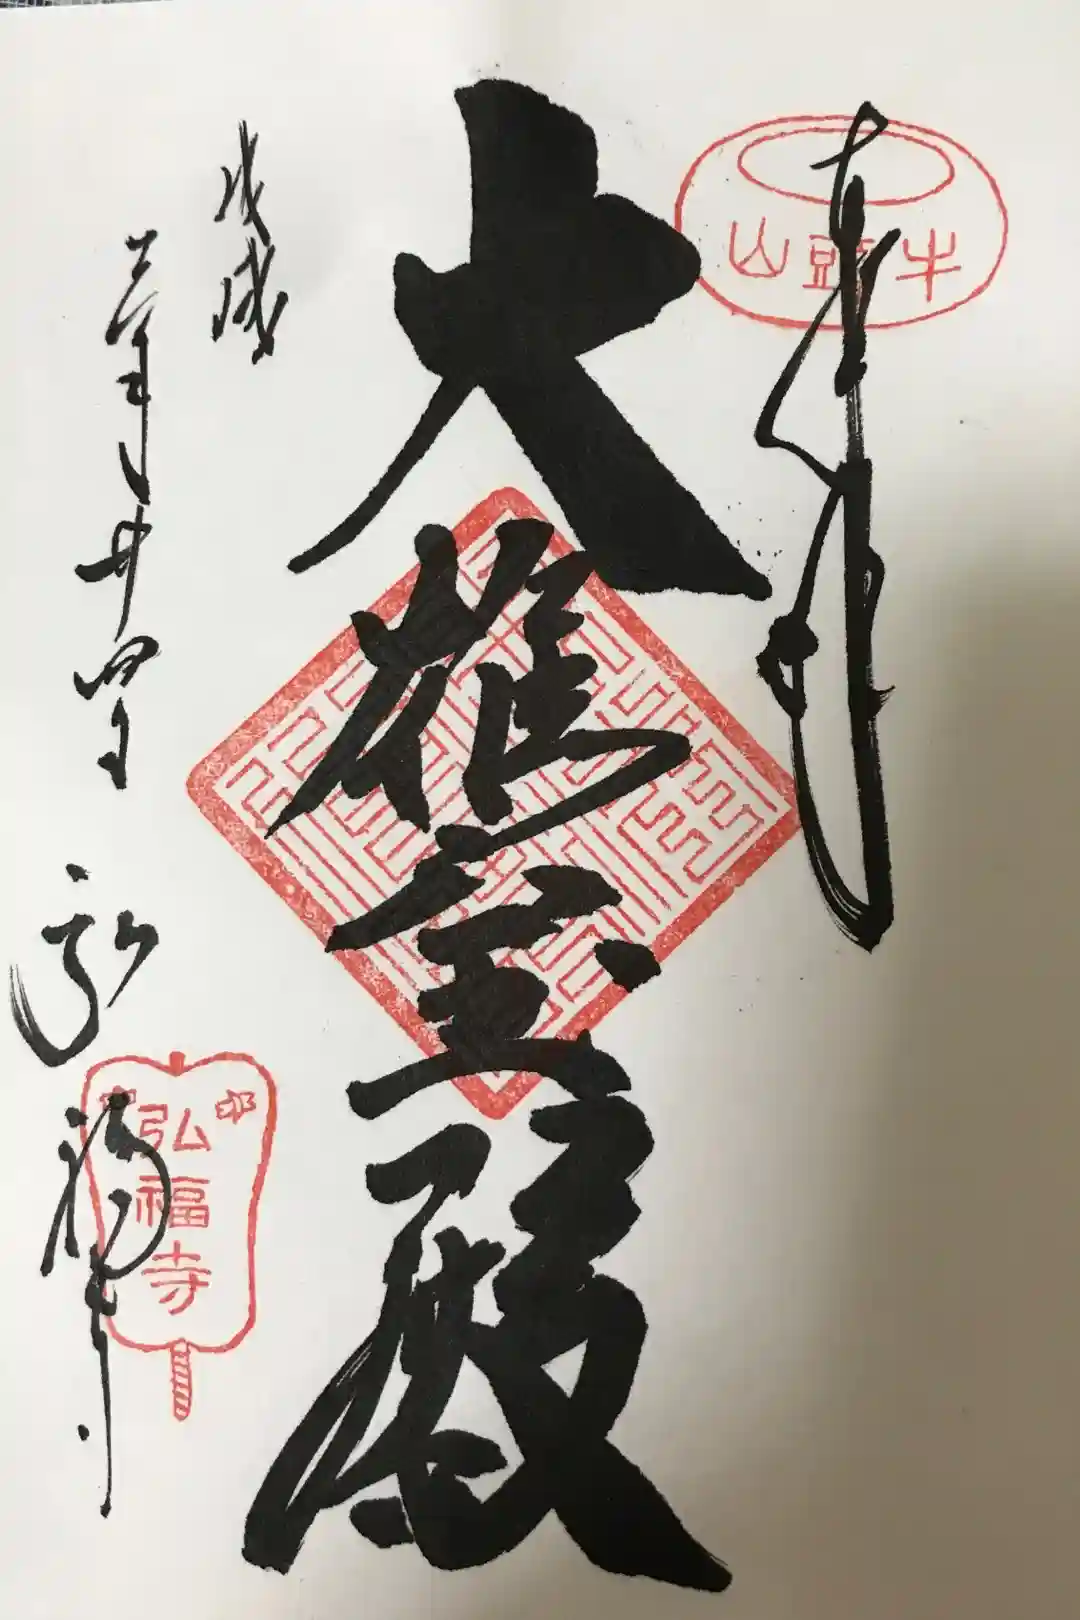 奉拝
牛頭山
大雄宝殿
戊戌
廿四日
弘福寺
弘福寺